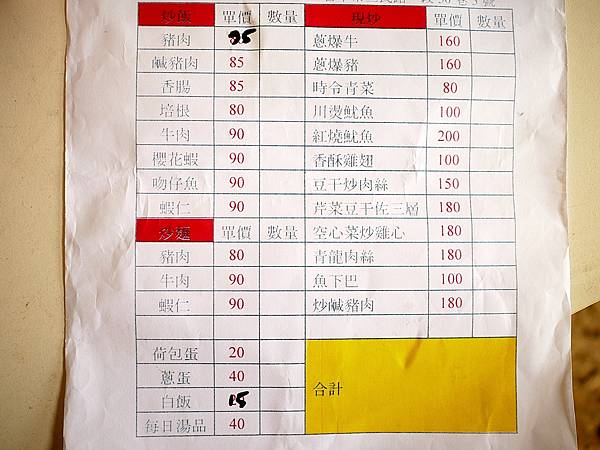 炒飯 單價 數量 現炒 單價 數量
豬肉 蔥爆牛 160
鹹豬肉 85 蔥爆豬 160
香腸 85 時令青菜 80
培根 80 川燙魷魚 100
牛肉 90 紅燒魷魚 200
櫻花蝦 90 香酥雞翅 100
吻仔魚 90 豆干炒肉絲 150
蝦仁 90 芹菜豆干佐三層 180
炒麵 單價 數量 空心菜炒雞心 180
豬肉 80 青龍肉絲 180
牛肉 90 魚下巴 100
蝦仁 90 炒鹹豬肉 180
荷包蛋 20
蔥蛋 40
合計
白飯 15
每日湯品 40